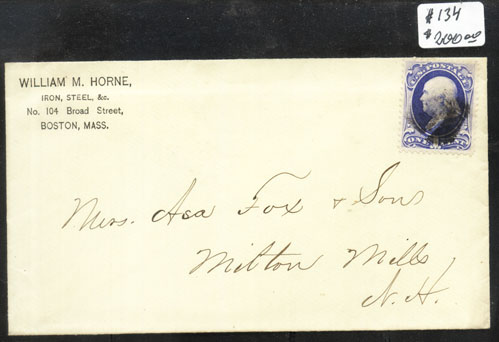 #134
$200.00
WILLIAM M. HORNE,
IRON, STEEL, &c.
No. 104 Broad Street,
BOSTON, MASS.
U.S. POSTAGE
ONE CENT
Mess. Asa Fox & Sons
Milton Mills
N.H.